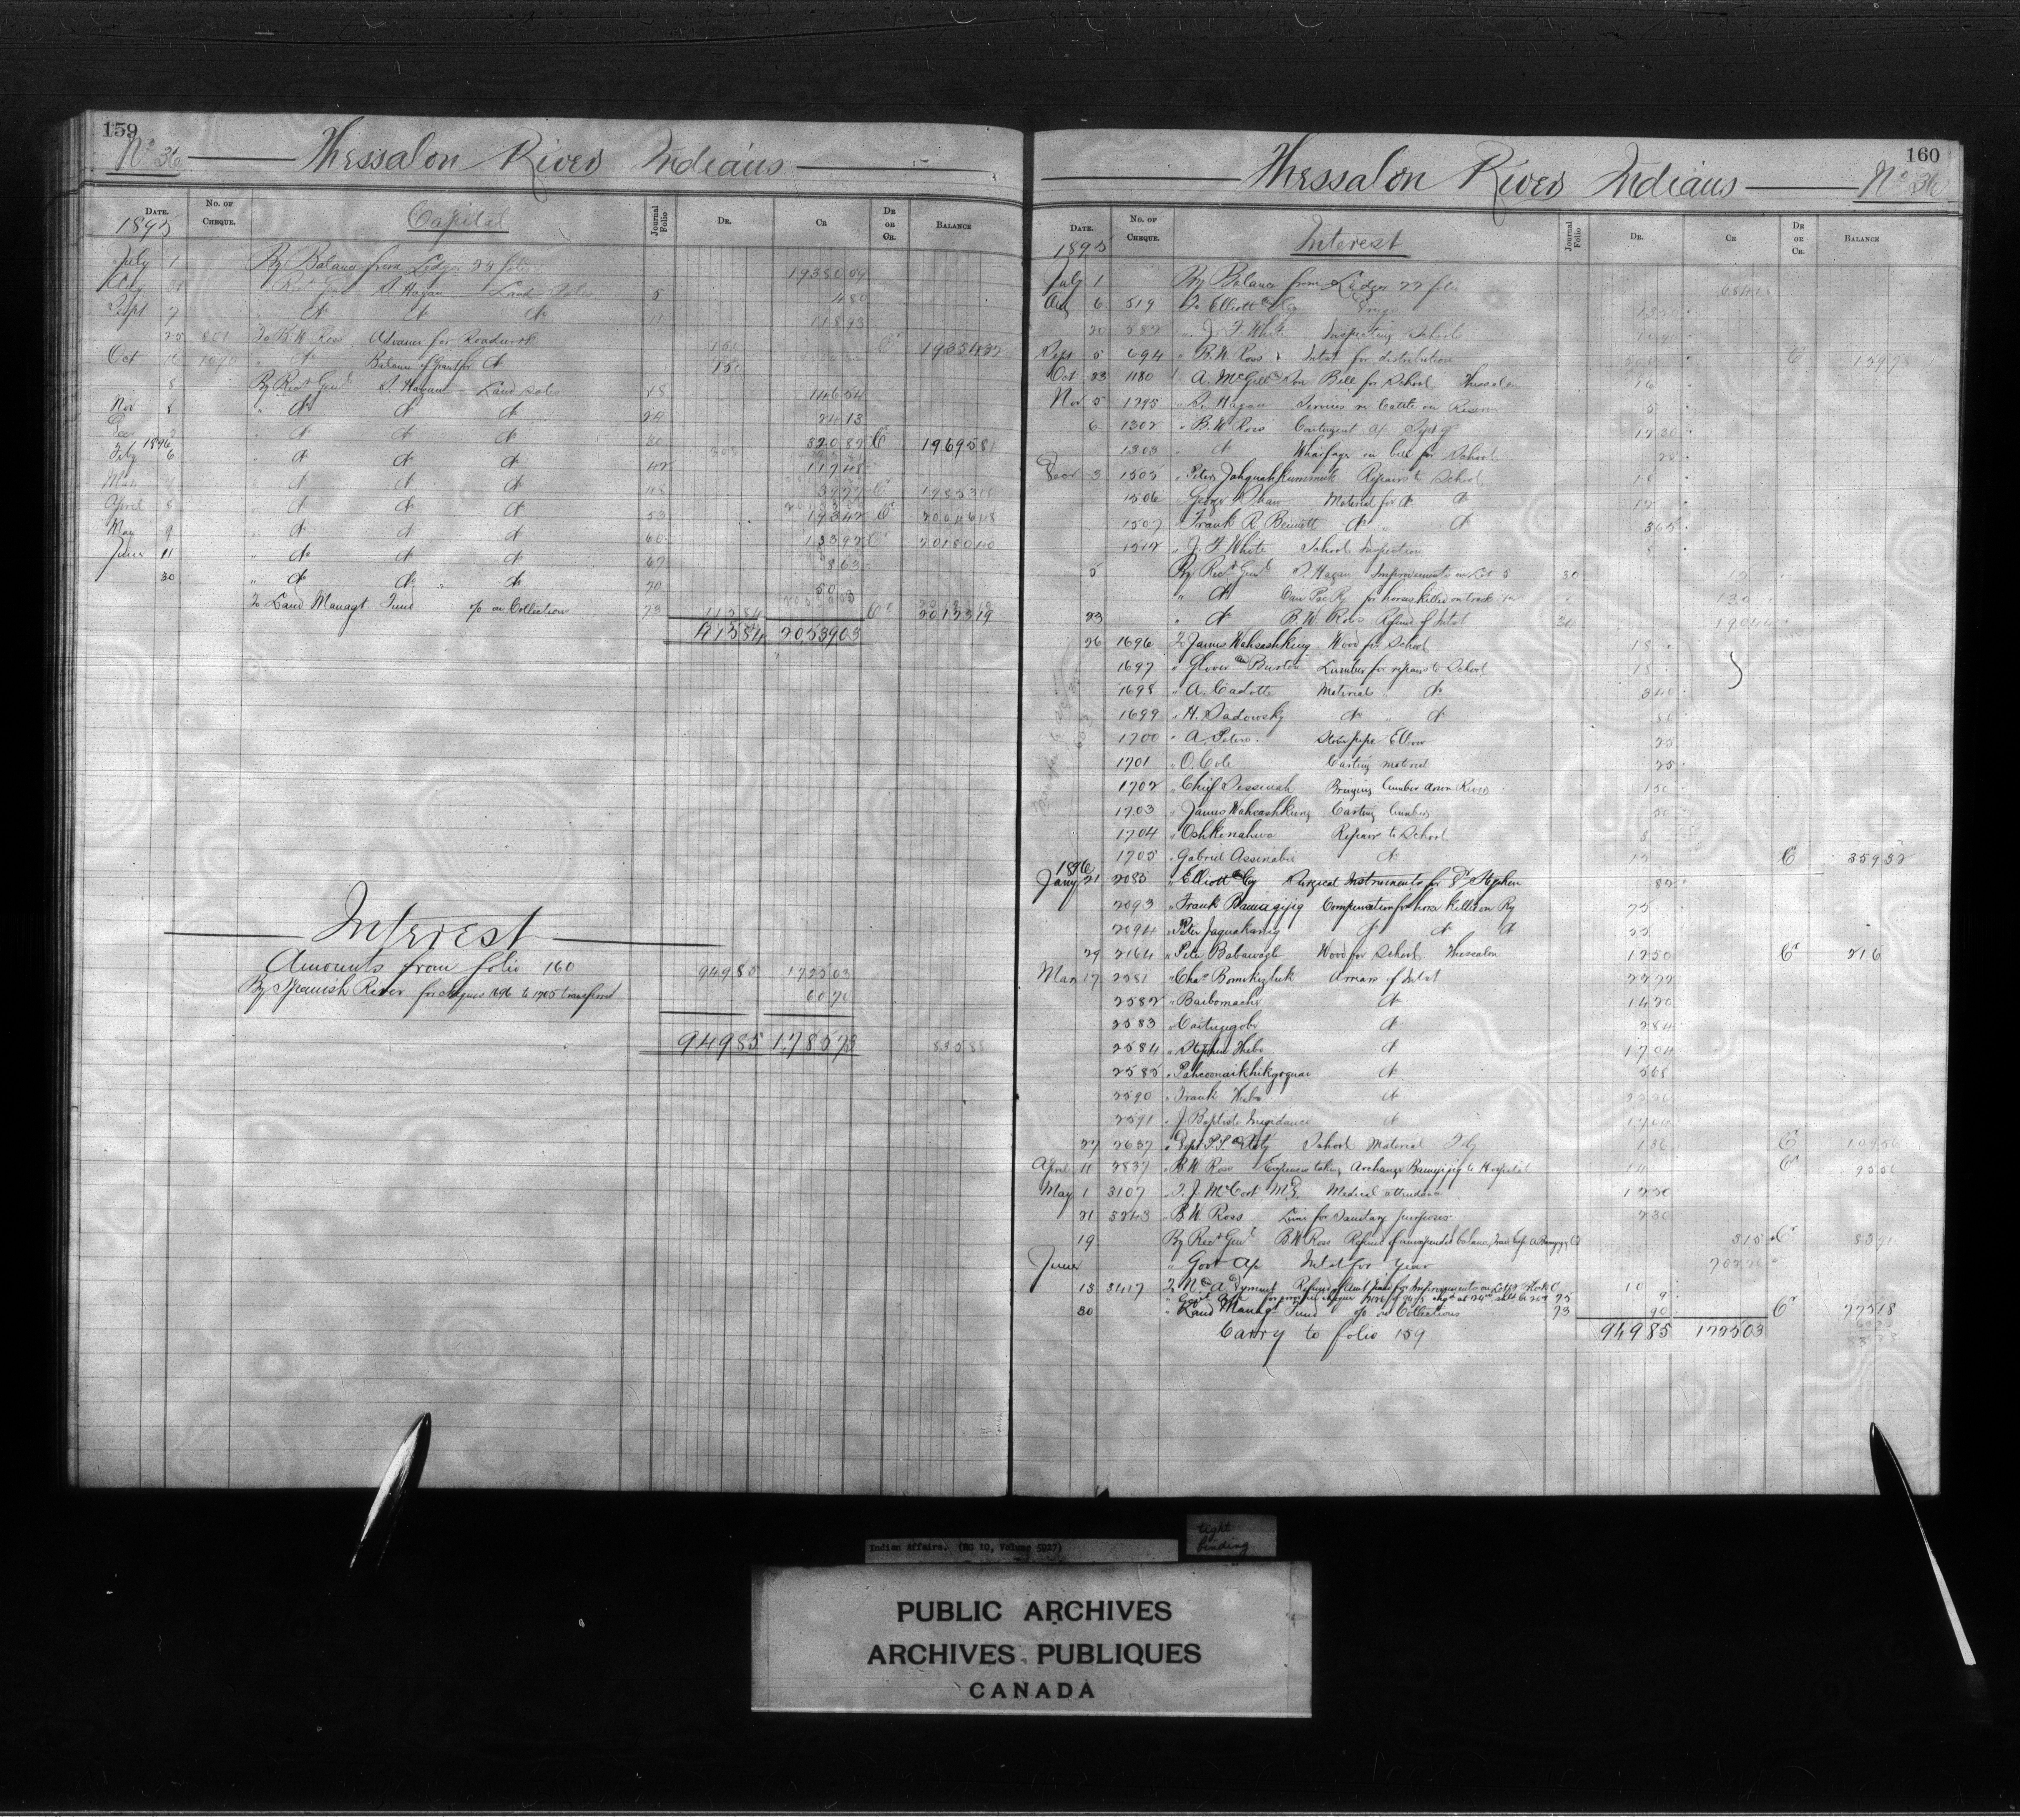 159
No 36 Thessalon River Indians
DATE. No. OF CHEQUE. Capital Journal Folio DR. CR DR OR CR. BALANCE
1895
July 1 By Balance from Ledger 22 folio 1938009
Aug 31 " Rec Genl S. Hagan Land Sales 5 480
Sept 7 " do do do 11 11893
25 801 To B.W. Ross Advance for Roadwork 150 Cr 1935432
Oct 16 1090 " do Balance of grant for do 150
8 By Rect Genl S. Hagan Land sales 18 14654
Nov 8 " do do do 24 2413
Dec " do do do 30 32082 Cr 1969581
1896
Feby 6 " do do do 42 11748
Mar " do do do 48 3977 Cr
April 8 " do do do 53 19342 Cr 2004618
May 9 " do do do 60 13392 Cr 2018010
June 11 " do do do 67 863
30 " do do do 70 50
To Land Managt Fund % on Collection 73 11584 Cr 2012319
41584 2053903
Interest
Amounts from folio 160 94985 172503
By Spanish River for cheques 1696 to 1705 transferred 6070
94985 178573 83588
160
Thessalon River Indians No 36
DATE. No. OF CHEQUE. Interest Journal Folio DR. CR DR OR CR. BALANCE
1895
July 1 By Balance from Ledger 22 folio
Aug 6 519 To Elliott & Co Drugs 1350
20 582 " J. F. White Inspecting School
Sept 5 694 " B.W. Ross Intst for distribution Cr
Oct 23 1180 " A. McGill & Son Bell for School Thessalon 16
Nov 5 1295 " S. Hagan Services re Cattle on Reserve 5
6 1302 " B.W. Ross Contingent a/c 1730
1303 " do Wharfage on bell for School 25
Decr 3 1505 " Peter Jahquahkummik Repairs to School 18
1506 " George Shaw Material for do do 12
1507 " Frank R. Bennett do " do 365
1512 " J. F. White School Inspection 8
5 By Rect Genl S. Hagan Improvements on Lot 5 30 10
" do Can Pac Ry for horses killed on track 130
23 " do B.W. Ross Refund of Intst 34 19044
26 1696 To James Wahsashkung Wood for School 18
1697 " Glover & Burton Lumber for repairs to School 15
1698 " A. Cadotte Material " do 340
1699 " H. Sadowsky do " do 50
1700 " A. Peters Stove pipe Elbow 25
1701 " O. Cole Carting material 25
1702 " Chief Dessinsh Bringing lumber down River 150
1703 " James Wahsashkung Carting lumber 50
1704 " Oshkenahwa Repairs to School 8
1705 " Gabriel Assinabie do 15 Cr 35932
1896
Jany 21 2085 " Elliott & Co Surgical Instruments for Dr Stephen 82
2093 " Frank Bamagijig Compensation for horse killed on Ry 75
2094 " Peter Jaquakamig do do do 55
29 2164 " Peter Babawagb Wood for School Thessalon 1250 Cr 216
Mar 17 2581 " Chas Bomekezhik Arrears of Intst 2272
2582 " Baibomache do 1420
2583 " Caitugegobe do 284
2584 " Stephen Thebo do 1704
2585 " Pahceenaikhikgoquai do 568
2590 " Frank Thebo do
2591 " J. Baptiste Megidance do 1704
27 2637 " Dept P.P. & Staty School Material 136 Cr
April 11 2837 " B.W. Ross Expenses taking Archange Bamagijig to Hospital 14 Cr 9556
May 1 3107 " T. J. McCort M.D. Medical attendance 1250
21 3243 " B.W. Ross Lime for Sanitary purposes 230
19 By Rect Genl B.W. Ross Refund of unexpended balance Trav Exp A Bamagijig 315 Cr 8391
June " Govt a/c Intst for Year
13 3417 To N. & A. Dyment Refund of Amt paid for Improvements on Lot 5 10
30 " Land Managt Fund % on Collections 73 90 Cr 77518
Carry to folio 159 94985 172503
Indian Affairs. (RG 10, Volume 5927)
tight
binding
PUBLIC ARCHIVES
ARCHIVES PUBLIQUES
CANADA